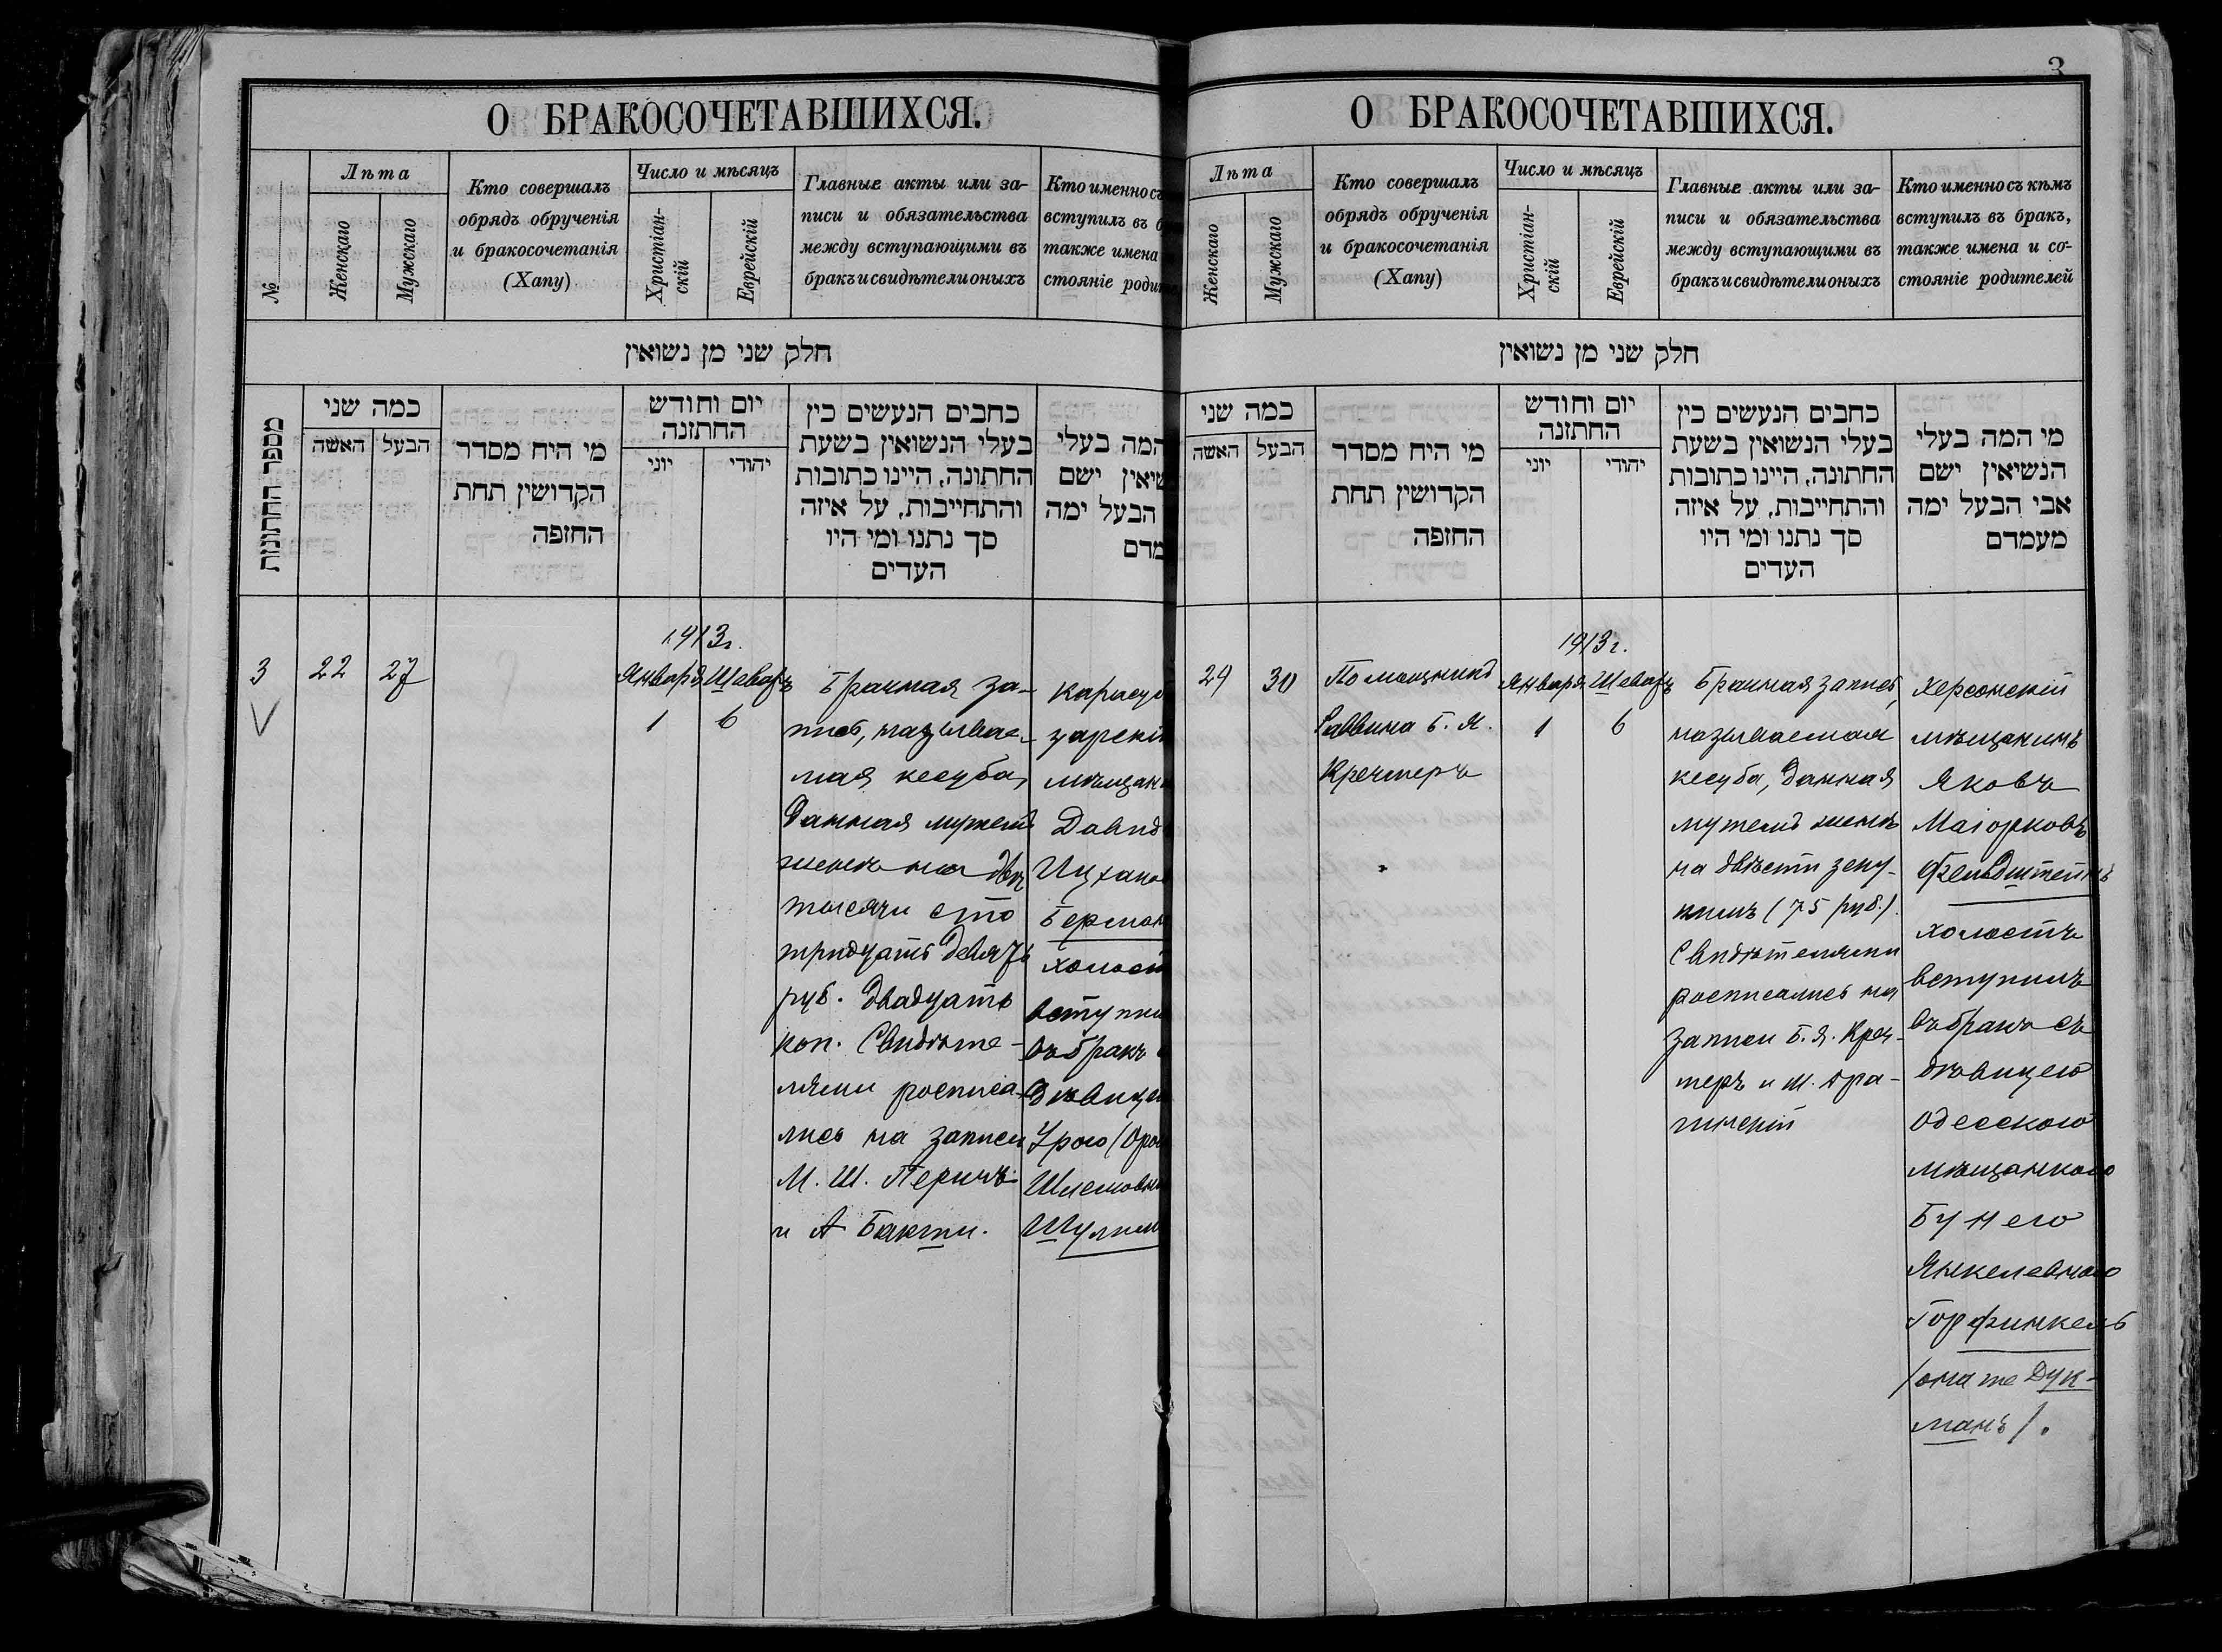 О БРАКОСОЧЕТАВШИХСЯ.
№
Лѣта
Женскаго
Мужскаго
Кто совершалъ
обрядъ обрученія
и бракосочетанія
(Хапу)
Число и мѣсяцъ
Христіан-
скій
Еврейскій
Главные акты или за-
писи и обязательства
между вступающими въ
бракъ и свидѣтели оныхъ
Кто именно съ
вступилъ въ б
также имена
стояніе роди
חלק שני מן נשואין
מספר החתונות
כמה שני
האשה
הבעל
מי היח מסדר
הקדושין תחת
החזפה
יום וחודש
החתזנה
יוני
יהודי
כחבים הנעשים כין
בעלי הנשואין בשעת
החתונה, היינו כתובות
והתחייבות, על איזה
סך נתנו ומי היו
העדים
המה בעלי
שיאין ישם
הבעל ימה
מדם
3
22
27
1913г.
Января
Шеватъ
1
6
Брачная за-
пись, называе-
мая кесуба,
данная мужемъ
женѣ на двѣ
тысячи сто
тридцать девять
руб. двадцать
коп. Свидѣте-
лями росписа-
лись на записи
М. Ш. Перичъ
и А Бакти.
Карасу
зарскі
мѣщан
Давид
Ицхако
Берман
холост
вступи
въ бракъ
дѣвице
Урою (Оро
Шлемовн
Шулим
3
О БРАКОСОЧЕТАВШИХСЯ.
Лѣта
Женскаго
Мужскаго
Кто совершалъ
обрядъ обрученія
и бракосочетанія
(Хапу)
Число и мѣсяцъ
Христіан-
скій
Еврейскій
Главные акты или за-
писи и обязательства
между вступающими въ
бракъ и свидѣтели оныхъ
Кто именно съ кѣмъ
вступилъ въ бракъ,
также имена и со-
стояніе родителей
חלק שני מן נשואין
כמה שני
האשה
הבעל
מי היח מסדר
הקדושין תחת
החזפה
יום וחודש
החתזנה
יוני
יהודי
כחבים הנעשים כין
בעלי הנשואין בשעת
החתונה, היינו כתובות
והתחייבות, על איזה
סך נתנו ומי היו
העדים
מי המה בעלי
הנשיאין ישם
אבי הבעל ימה
מעמדם
30
Помощникъ
Раввина Б. Я.
Кречмеръ
1913г.
Января
Шеватъ
1
6
Брачная запись,
называемая
кесуба, данная
мужемъ женѣ
на двѣсти зеку-
кимъ (75 руб.).
Свидѣтелями
росписались на
записи Б. Я. Креч-
меръ и М. Дра-
гинскій
Херсонскій
мѣщанинъ
Яковъ
Маіорковъ
Фельдштейнъ
холостъ
вступилъ
въ бракъ съ
дѣвицею
одесскою
мѣщанкою
Бунею
Янкелевною
Горфинкель
(она же Дук-
манъ).